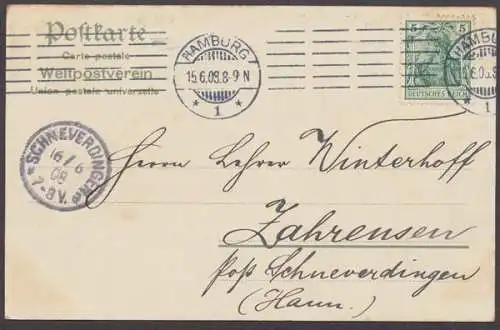 Postkarte
Carte postale
Weltpostverein
Union postale universelle
HAMBURG
15.6.08.8-9 N
* 1 *
5 5
DEUTSCHES REICH
HAMBURG
* SCHNEVERDINGEN *
16/6
08
7-8V.
Herrn Lehrer Winterhoff
Zahrensen
Post Schneverdingen
(Hann.)